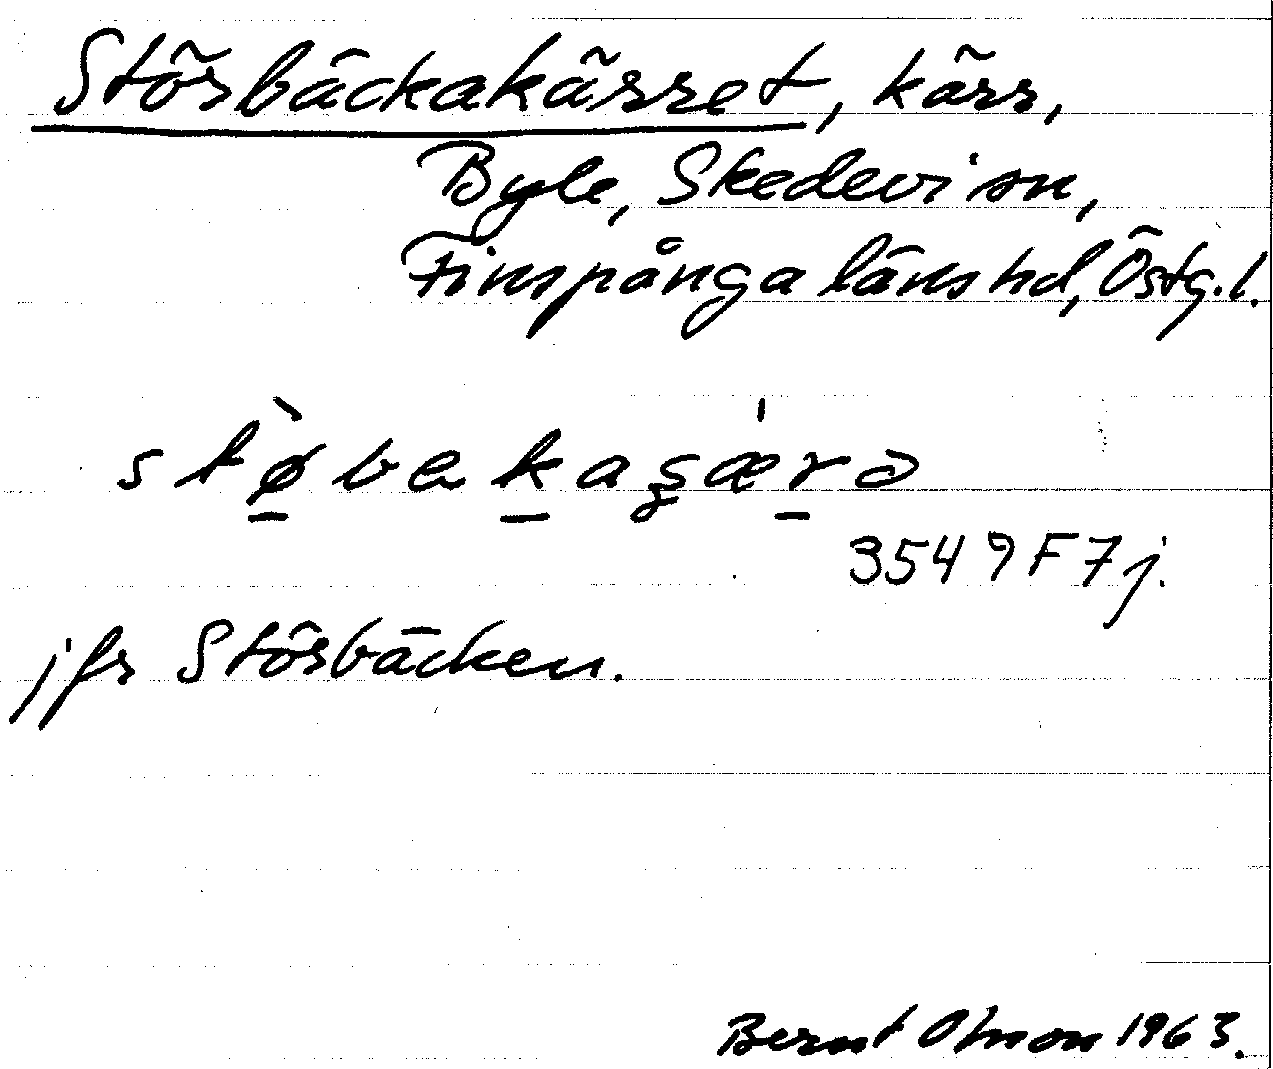 Störbäckakärret, kärr,
Byle, Skedevi sn,
Finspånga läns hd, Östg.l.
stø̀bækaʂæ̍rə
3549 F 7 j.
jfr Störbäcken.
Bernt Olsson 1963.